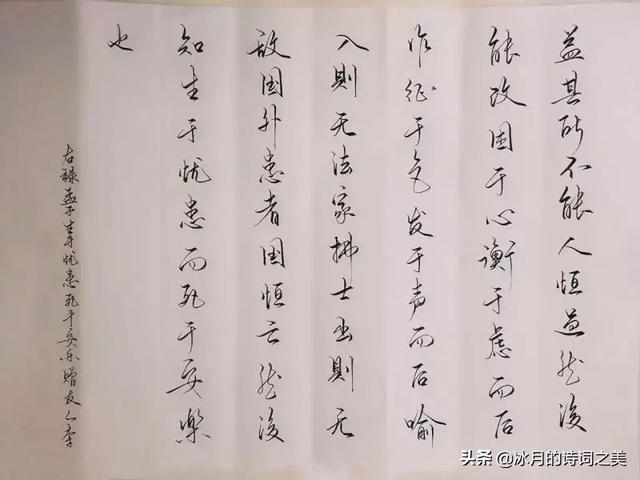 益其所不能人恒过然後
能改困于心衡于虑而后
作征于气发于声而后喻
入則无法家拂士出則无
敌国外患者国恒亡然後
知生于忧患而死于安樂
也
右録孟子生于忧患死于安乐赠友人李
头条 @冰月的诗词之美